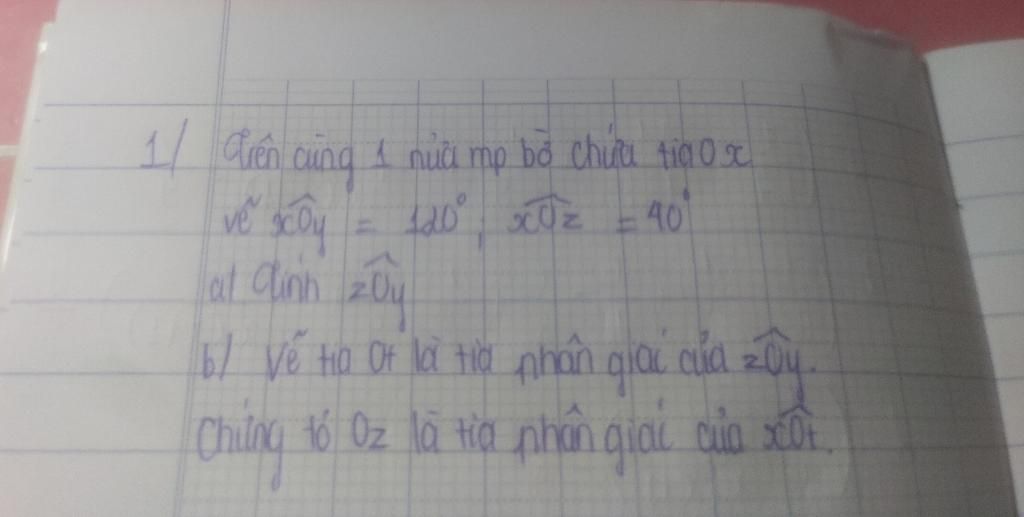 1/ Trên cùng 1 nửa mp bờ chứa tia Ox
vẽ xÔy = 120°, xÔz = 40°
a/ Tính zÔy
b/ Vẽ tia Ot là tia phân giác của zÔy.
Chứng tỏ Oz là tia phân giác của xÔt.